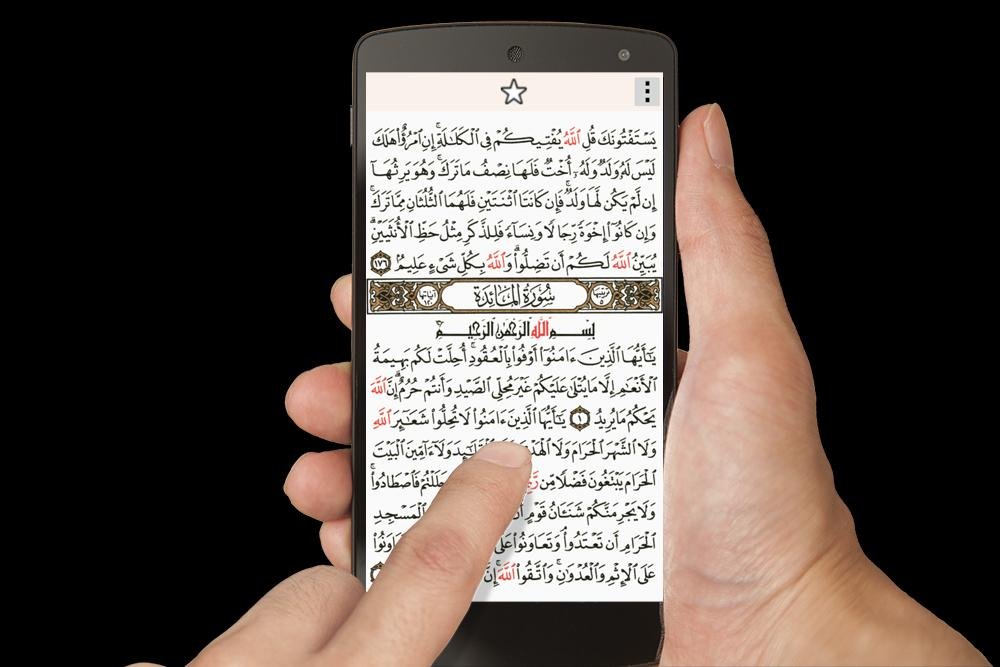 يَسْتَفْتُونَكَ قُلِ ٱللَّهُ يُفْتِيكُمْ فِى ٱلْكَلَـٰلَةِ ۚ إِنِ ٱمْرُؤٌا۟ هَلَكَ
لَيْسَ لَهُۥ وَلَدٌ وَلَهُۥٓ أُخْتٌ فَلَهَا نِصْفُ مَا تَرَكَ ۚ وَهُوَ يَرِثُهَآ
إِن لَّمْ يَكُن لَّهَا وَلَدٌ ۚ فَإِن كَانَتَا ٱثْنَتَيْنِ فَلَهُمَا ٱلثُّلُثَانِ مِمَّا تَرَكَ ۚ
وَإِن كَانُوٓا۟ إِخْوَةً رِّجَالًا وَنِسَآءً فَلِلذَّكَرِ مِثْلُ حَظِّ ٱلْأُنثَيَيْنِ ۗ
يُبَيِّنُ ٱللَّهُ لَكُمْ أَن تَضِلُّوا۟ ۗ وَٱللَّهُ بِكُلِّ شَىْءٍ عَلِيمٌۢ ١٧٦
سُورَةُ المَائِدَة
بِسْمِ ٱللَّهِ ٱلرَّحْمَـٰنِ ٱلرَّحِيمِ
يَـٰٓأَيُّهَا ٱلَّذِينَ ءَامَنُوٓا۟ أَوْفُوا۟ بِٱلْعُقُودِ ۚ أُحِلَّتْ لَكُم بَهِيمَةُ
ٱلْأَنْعَـٰمِ إِلَّا مَا يُتْلَىٰ عَلَيْكُمْ غَيْرَ مُحِلِّى ٱلصَّيْدِ وَأَنتُمْ حُرُمٌ ۗ إِنَّ ٱللَّهَ
يَحْكُمُ مَا يُرِيدُ ١ يَـٰٓأَيُّهَا ٱلَّذِينَ ءَامَنُوا۟ لَا تُحِلُّوا۟ شَعَـٰٓئِرَ ٱللَّهِ
وَلَا ٱلشَّهْرَ ٱلْحَرَامَ وَلَا وَلَآ ءَآمِّينَ ٱلْبَيْتَ
ٱلْحَرَامَ يَبْتَغُونَ فَضْلًا مِّن فَٱصْطَادُوا۟ ۚ
وَلَا يَجْرِمَنَّكُمْ شَنَـَٔانُ قَوْمٍ ٱلْمَسْجِدِ
ٱلْحَرَامِ أَن تَعْتَدُوا۟ ۘ وَتَعَاوَنُوا۟ عَلَى
عَلَى ٱلْإِثْمِ وَٱلْعُدْوَٰنِ ۚ وَٱتَّقُوا۟ ٱللَّهَ ۖ إِنَّ